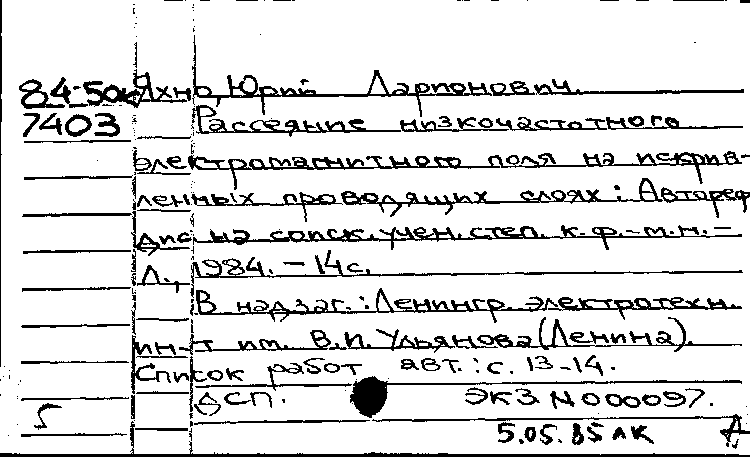 84-50к Яхно, Юрий Ларионович.
7403 Рассеяние низкочастотного
электромагнитного поля на искрив-
ленных проводящих слоях: Автореф
дис на соиск. учен. степ. к.ф.-м.н. –
Л., 1984. – 14с.
В надзаг.: Ленингр. электротехн.
ин-т им. В.И. Ульянова (Ленина).
Список работ авт.: с. 13-14.
ДСП. ЭКЗ N 000097.
5
5.05.85 ЛК А